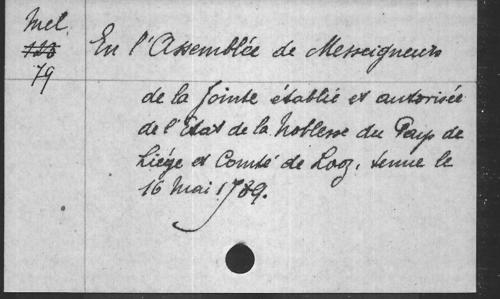 Mel.
123
79
En l'Assemblée de Messeigneurs
de la Jointe établie et autorisée
de l'Etat de la Noblesse du Pays de
Liége et Comté de Looz, tenue le
16 Mai 1789.